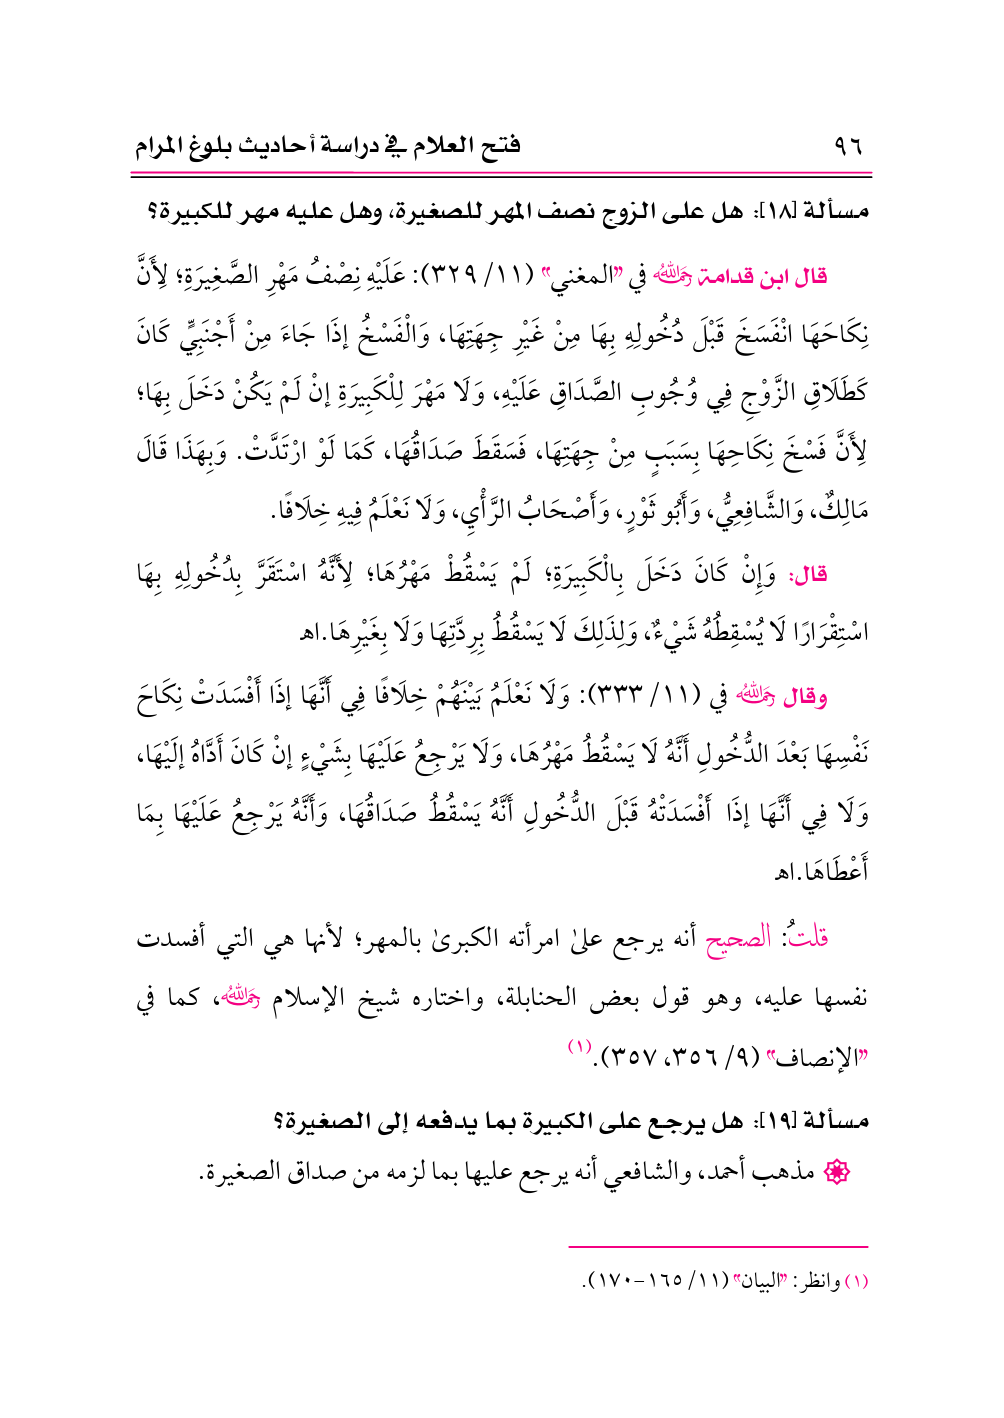 ٩٦ فتح العلام في دراسة أحاديث بلوغ المرام
مسألة [١٨]: هل على الزوج نصف المهر للصغيرة، وهل عليه مهر للكبيرة؟
قال ابن قدامة رحمه الله في "المغني" (١١/ ٣٢٩): عَلَيْهِ نِصْفُ مَهْرِ الصَّغِيرَةِ؛ لِأَنَّ
نِكَاحَهَا انْفَسَخَ قَبْلَ دُخُولِهِ بِهَا مِنْ غَيْرِ جِهَتِهَا، وَالْفَسْخُ إذَا جَاءَ مِنْ أَجْنَبِيٍّ كَانَ
كَطَلَاقِ الزَّوْجِ فِي وُجُوبِ الصَّدَاقِ عَلَيْهِ، وَلَا مَهْرَ لِلْكَبِيرَةِ إنْ لَمْ يَكُنْ دَخَلَ بِهَا؛
لِأَنَّ فَسْخَ نِكَاحِهَا بِسَبَبٍ مِنْ جِهَتِهَا، فَسَقَطَ صَدَاقُهَا، كَمَا لَوْ ارْتَدَّتْ. وَبِهَذَا قَالَ
مَالِكٌ، وَالشَّافِعِيُّ، وَأَبُو ثَوْرٍ، وَأَصْحَابُ الرَّأْيِ، وَلَا نَعْلَمُ فِيهِ خِلَافًا.
قال: وَإِنْ كَانَ دَخَلَ بِالْكَبِيرَةِ؛ لَمْ يَسْقُطْ مَهْرُهَا؛ لِأَنَّهُ اسْتَقَرَّ بِدُخُولِهِ بِهَا
اسْتِقْرَارًا لَا يُسْقِطُهُ شَيْءٌ، وَلِذَلِكَ لَا يَسْقُطُ بِرِدَّتِهَا وَلَا بِغَيْرِهَا.اهـ
وقال رحمه الله في (١١/ ٣٣٣): وَلَا نَعْلَمُ بَيْنَهُمْ خِلَافًا فِي أَنَّهَا إذَا أَفْسَدَتْ نِكَاحَ
نَفْسِهَا بَعْدَ الدُّخُولِ أَنَّهُ لَا يَسْقُطُ مَهْرُهَا، وَلَا يَرْجِعُ عَلَيْهَا بِشَيْءٍ إنْ كَانَ أَدَّاهُ إلَيْهَا،
وَلَا فِي أَنَّهَا إذَا أَفْسَدَتْهُ قَبْلَ الدُّخُولِ أَنَّهُ يَسْقُطُ صَدَاقُهَا، وَأَنَّهُ يَرْجِعُ عَلَيْهَا بِمَا
أَعْطَاهَا.اهـ
قلتُ: الصحيح أنه يرجع علىٰ امرأته الكبرىٰ بالمهر؛ لأنها هي التي أفسدت
نفسها عليه، وهو قول بعض الحنابلة، واختاره شيخ الإسلام رحمه الله، كما في
"الإنصاف" (٩/ ٣٥٦، ٣٥٧).(١)
مسألة [١٩]: هل يرجع على الكبيرة بما يدفعه إلى الصغيرة؟
مذهب أحمد، والشافعي أنه يرجع عليها بما لزمه من صداق الصغيرة.
(١) وانظر: "البيان" (١١/ ١٦٥-١٧٠).